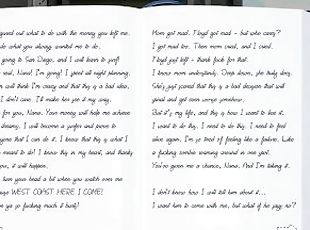 figured out what to do with the money you left me.
do what you always wanted me to do.
going to San Diego, and I will learn to surf!
real, Nana! I'm going! I spent all night planning,
will think I'm crazy and that this is a bad idea,
I don't care. I'll make her see it my way.
for you, Nana. Your money will help me achieve
dreams. I will become a surfer and prove to
that I can do it. I know that this is what I
meant to do! I know this in my heart, and thanks
you, it will happen.
have a bit when you watch over me
WEST COAST HERE I COME!
ya so fucking much it hurts!
Mom got mad. Floyd got mad - but who cares?
I got mad too. Then mom cried, and I cried.
Floyd just left - thank fuck for that.
I know mom understands. Deep down, she truly does.
She's just scared that this is a bad decision that will
spiral and get even worse somehow.
But it's my life, and this is how I want to live it.
I want to do this. I need to do this. I need to feel
alive again. I'm so tired of feeling like a failure. Like
a fucking zombie running around in one spot.
You've given me a chance, Nana. And I'm taking it.
I don't know how I will tell him about it...
I want him to come with me, but what if he says no?